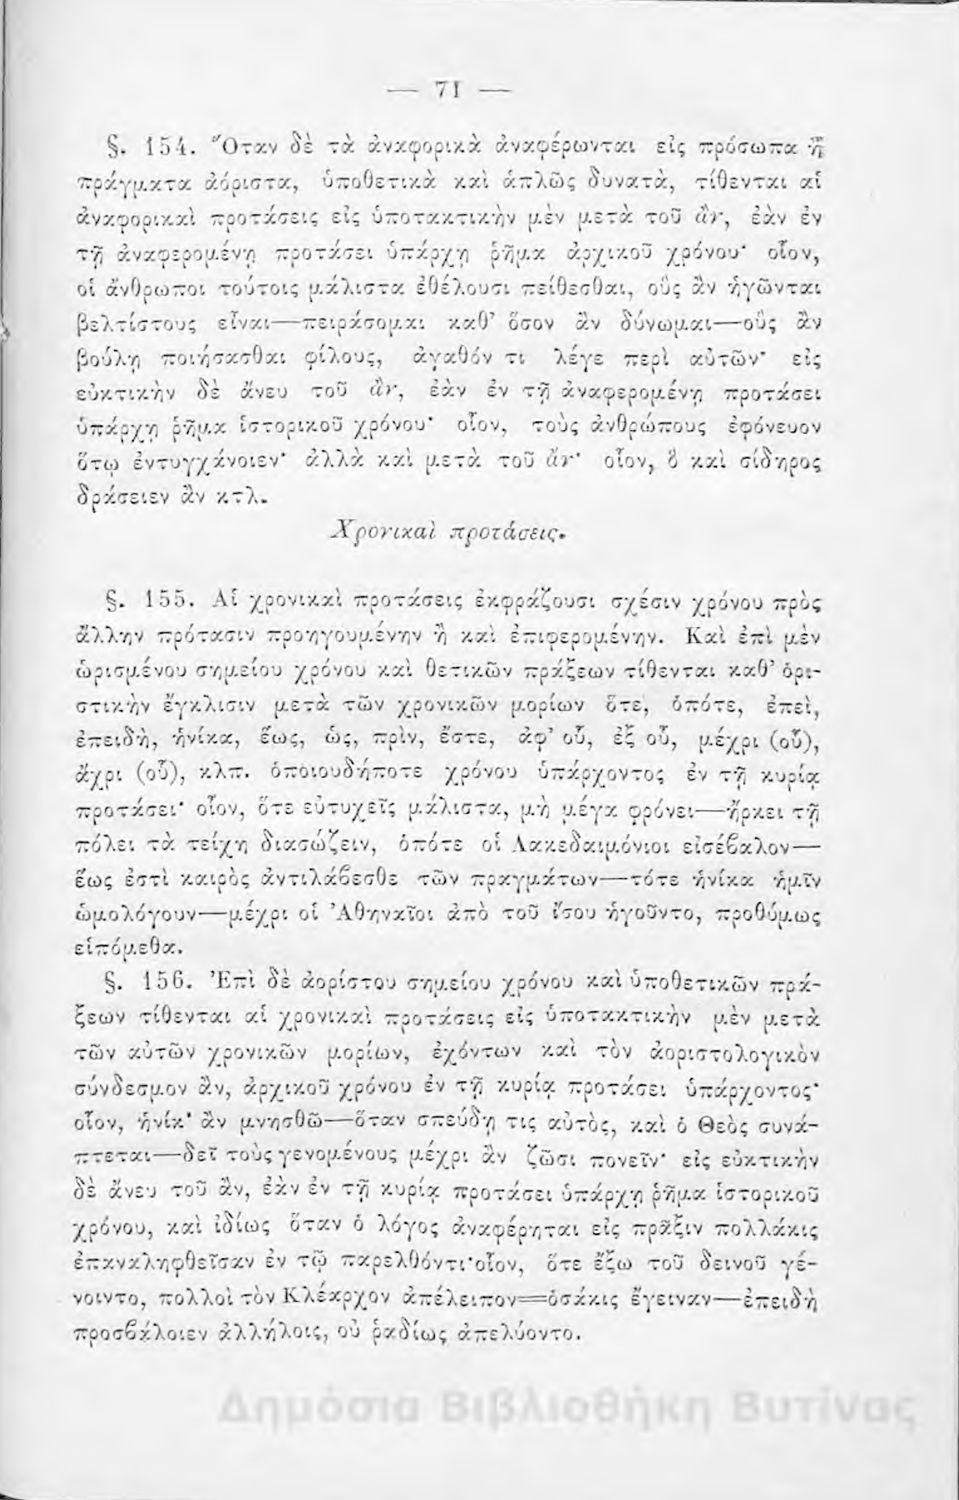 — 71 —
§. 154. Ὅταν δὲ τὰ ἀναφορικὰ ἀναφέρωνται εἰς πρόσωπα ἢ
πράγματα ἀόριστα, ὑποθετικὰ καὶ ἁπλῶς δυνατὰ, τίθενται αἱ
ἀναφορικαὶ προτάσεις εἰς ὑποτακτικὴν μὲν μετὰ τοῦ ἂν, ἐὰν ἐν
τῇ ἀναφερομένῃ προτάσει ὑπάρχῃ ῥῆμα ἀρχικοῦ χρόνου· οἷον,
οἱ ἄνθρωποι τούτοις μάλιστα ἐθέλουσι πείθεσθαι, οὓς ἂν ἡγῶνται
βελτίστους εἶναι—πειράσομαι καθ’ ὅσον ἂν δύνωμαι—οὓς ἂν
βούλῃ ποιήσασθαι φίλους, ἀγαθόν τι λέγε περὶ αὐτῶν· εἰς
εὐκτικὴν δὲ ἄνευ τοῦ ἂν, ἐὰν ἐν τῇ ἀναφερομένῃ προτάσει
ὑπάρχῃ ῥῆμα ἱστορικοῦ χρόνου· οἷον, τοὺς ἀνθρώπους ἐφόνευον
ὅτῳ ἐντυγχάνοιεν· ἀλλὰ καὶ μετὰ τοῦ ἄν· οἷον, ὃ καὶ σίδηρος
δράσειεν ἂν κτλ.
Χρονικαὶ προτάσεις.
§. 155. Αἱ χρονικαὶ προτάσεις ἐκφράζουσι σχέσιν χρόνου πρὸς
ἄλλην πρότασιν προηγουμένην ἢ καὶ ἐπιφερομένην. Καὶ ἐπὶ μὲν
ὡρισμένου σημείου χρόνου καὶ θετικῶν πράξεων τίθενται καθ’ ὁρι-
στικὴν ἔγκλισιν μετὰ τῶν χρονικῶν μορίων ὅτε, ὁπότε, ἐπεὶ,
ἐπειδὴ, ἡνίκα, ἕως, ὡς, πρὶν, ἔστε, ἀφ’ οὗ, ἐξ οὗ, μέχρι (οὗ),
ἄχρι (οὗ), κλπ. ὁποιουδήποτε χρόνου ὑπάρχοντος ἐν τῇ κυρίᾳ
προτάσει· οἷον, ὅτε εὐτυχεῖς μάλιστα, μὴ μέγα φρόνει—ἤρκει τῇ
πόλει τὰ τείχη διασώζειν, ὁπότε οἱ Λακεδαιμόνιοι εἰσέβαλον—
ἕως ἐστὶ καιρὸς ἀντιλάβεσθε τῶν πραγμάτων—τότε ἡνίκα ἡμῖν
ὡμολόγουν—μέχρι οἱ Ἀθηναῖοι ἀπὸ τοῦ ἴσου ἡγοῦντο, προθύμως
εἱπόμεθα.
§. 156. Ἐπὶ δὲ ἀορίστου σημείου χρόνου καὶ ὑποθετικῶν πρά-
ξεων τίθενται αἱ χρονικαὶ προτάσεις εἰς ὑποτακτικὴν μὲν μετὰ
τῶν αὐτῶν χρονικῶν μορίων, ἐχόντων καὶ τὸν ἀοριστολογικὸν
σύνδεσμον ἂν, ἀρχικοῦ χρόνου ἐν τῇ κυρίᾳ προτάσει ὑπάρχοντος·
οἷον, ἡνίκ’ ἂν μνησθῶ—ὅταν σπεύδῃ τις αὐτὸς, καὶ ὁ Θεὸς συνά-
πτεται—δεῖ τοὺς γενομένους μέχρι ἂν ζῶσι πονεῖν· εἰς εὐκτικὴν
δὲ ἄνευ τοῦ ἂν, ἐὰν ἐν τῇ κυρίᾳ προτάσει ὑπάρχῃ ῥῆμα ἱστορικοῦ
χρόνου, καὶ ἰδίως ὅταν ὁ λόγος ἀναφέρηται εἰς πρᾶξιν πολλάκις
ἐπαναληφθεῖσαν ἐν τῷ παρελθόντι·οἷον, ὅτε ἔξω τοῦ δεινοῦ γέ-
νοιντο, πολλοὶ τὸν Κλέαρχον ἀπέλειπον=ὁσάκις ἔγειναν—ἐπειδὴ
προσβάλοιεν ἀλλήλοις, οὐ ῥᾳδίως ἀπελύοντο.
Δημόσια Βιβλιοθήκη Βυτίνας